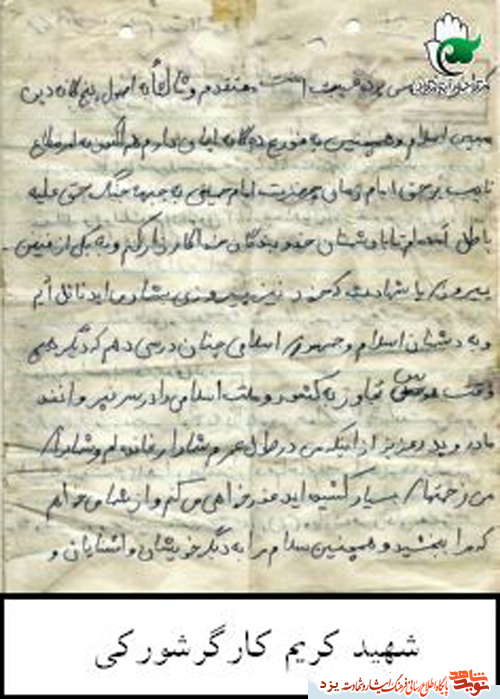 سی پر فضیلت است معتقدم و ثالثاً به اصول پنج گانه دین
مبین اسلام و همچنین به فروع ده گانه ایمان دارم هم اکنون به امر مطاع
نایب برحق امام زمان حضرت امام خمینی به جبهه جنگ حق علیه
باطل آمده ام تا با دشمنان خدا و بندگان خدا کارزار کنم و به یکی از فیض
پیروزی یا شهادت که خود نیز پیروزی بشمار می‌اید نائل آیم
و به دشمنان اسلام و جمهوری اسلامی چنان درسی دهم که دیگر هیچ
وقت هوس تجاوز به کشور و ملت اسلامی را در سر نپرورانند
مادر و پدر عزیز از اینکه من در طول عمرم شما را رنجانده ام و شما برای
من زحمتهای بسیار کشیده اید عذر خواهی می کنم و از شما می خواهم
که مرا ببخشید و همچنین سلام مرا به دیگر خویشان و آشنایان و
شهید کریم کارگر شورکی
نوید شاهد
پایگاه اطلاع رسانی فرهنگ ایثار و شهادت یزد